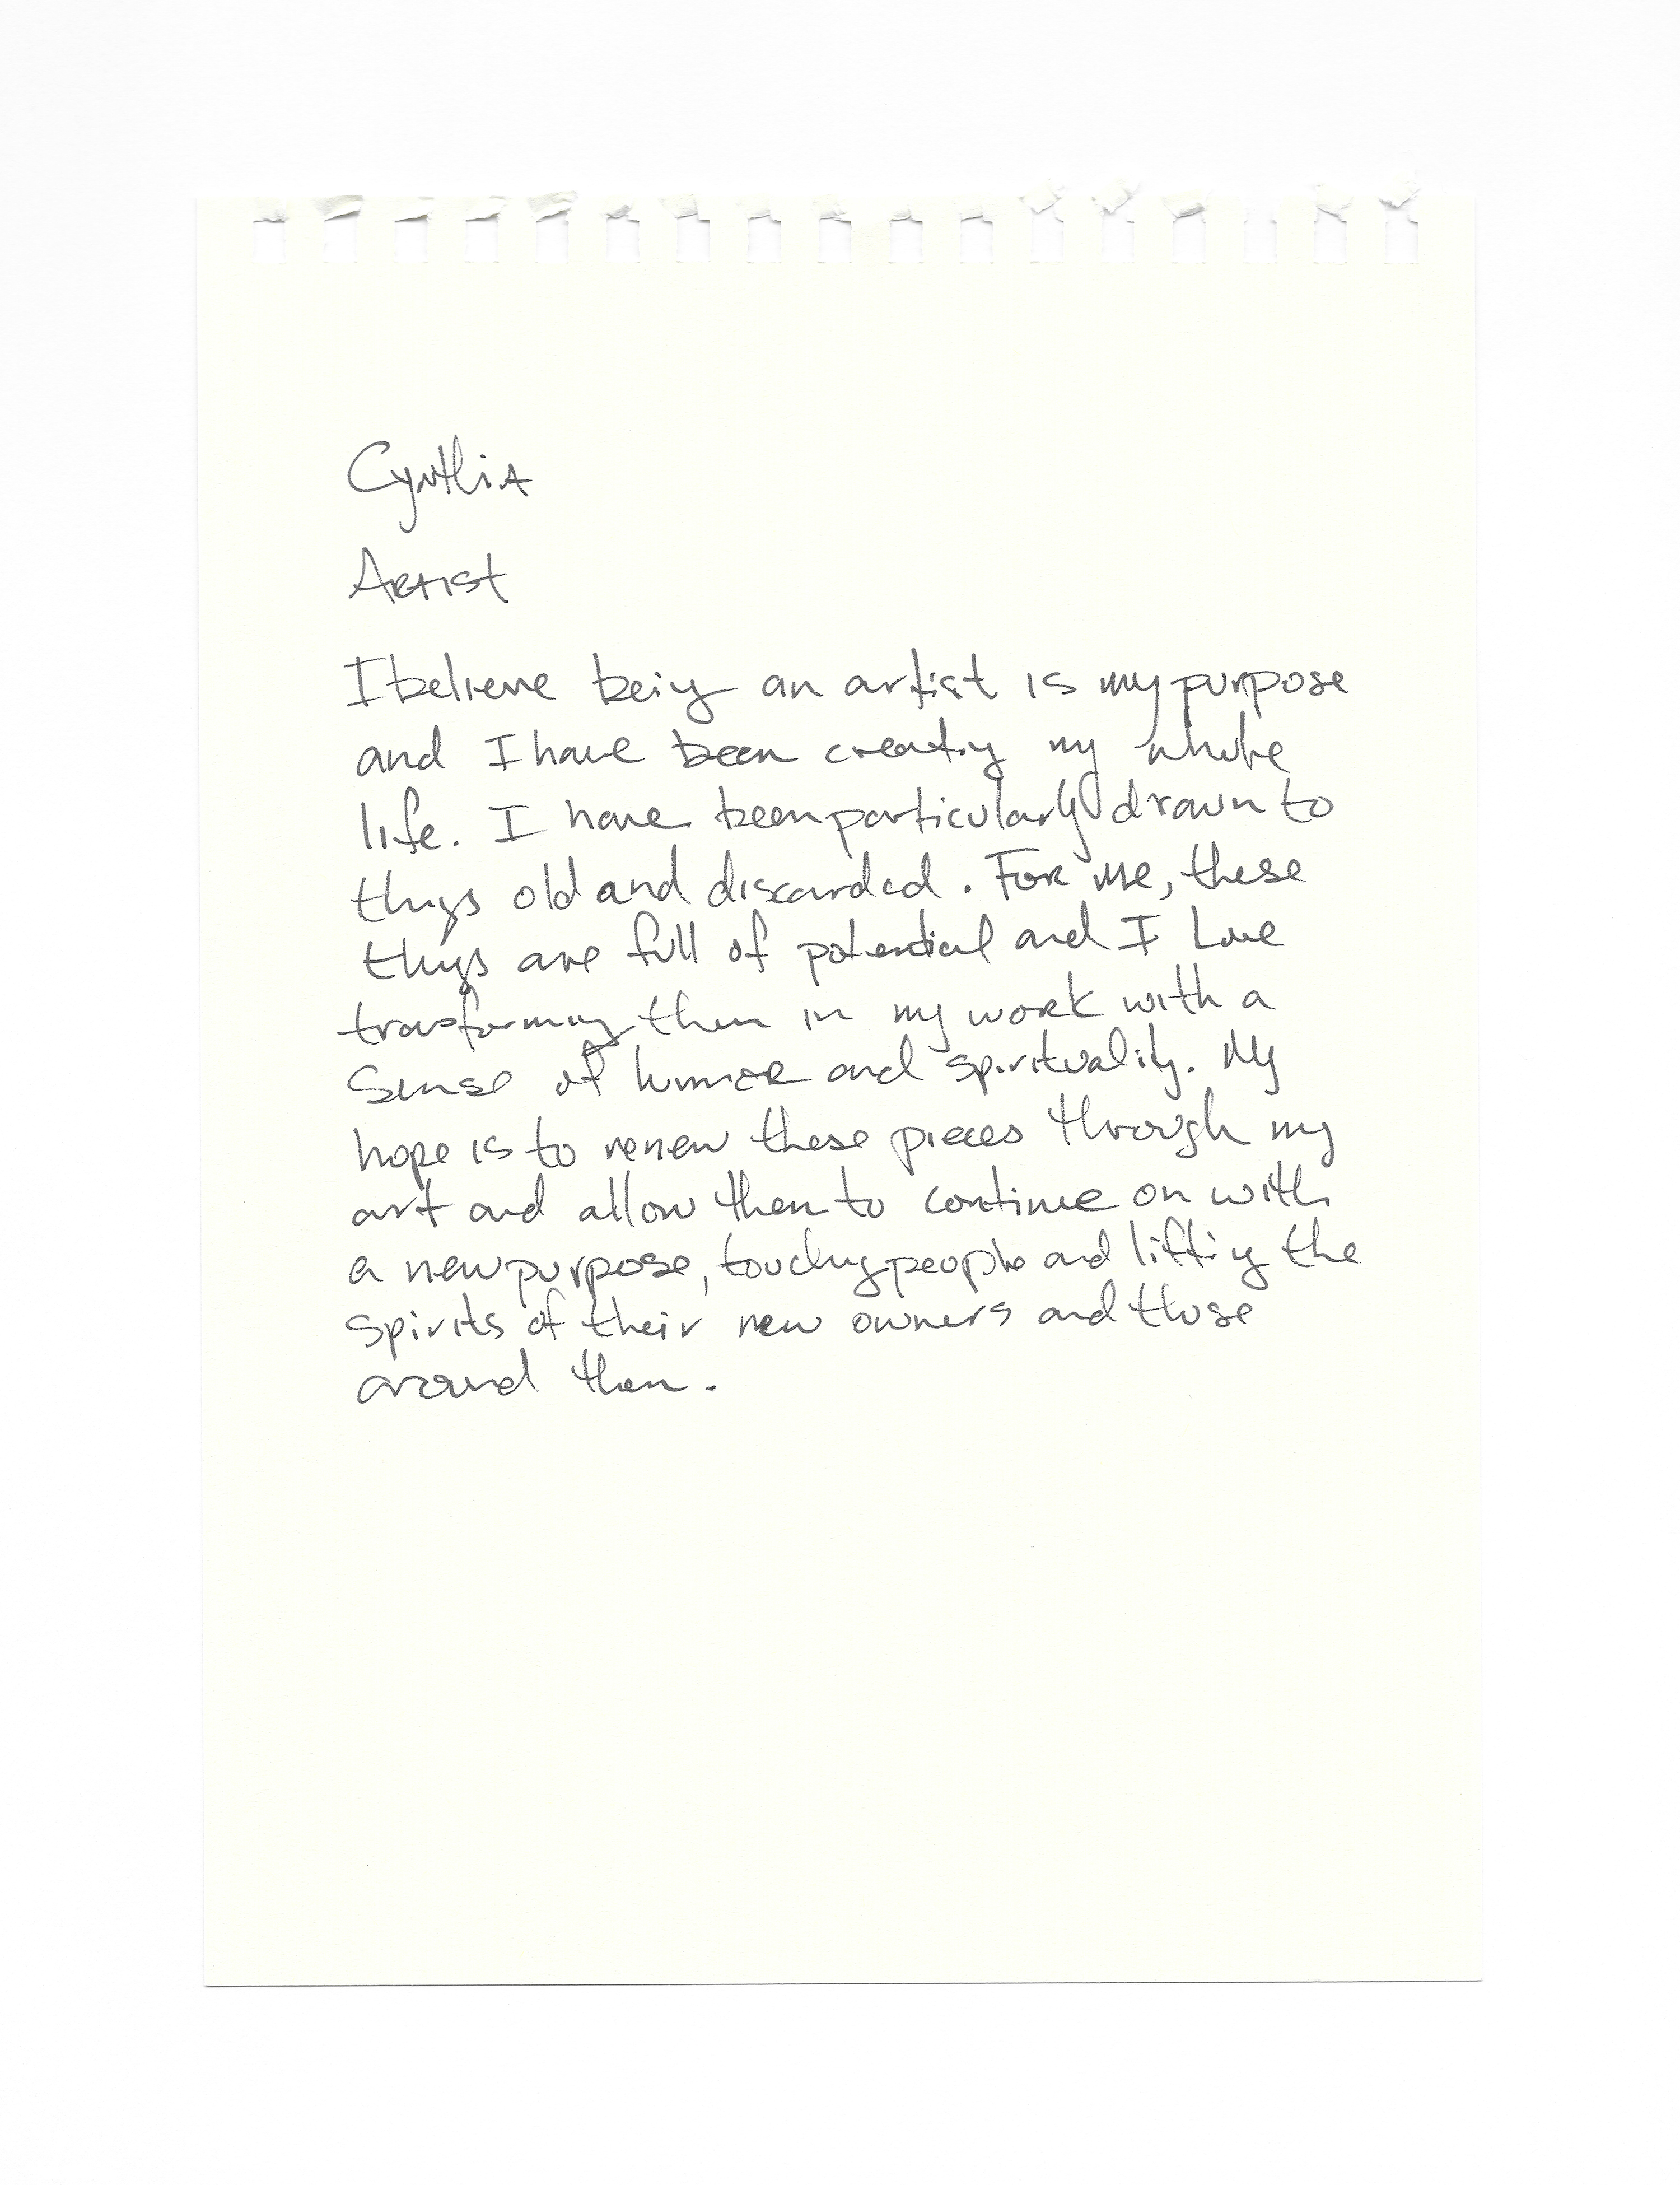 Cynthia
Artist
I believe being an artist is my purpose
and I have been creating my whole
life. I have been particularly drawn to
things old and discarded. For me, these
things are full of potential and I Love
transforming them in my work with a
sense of humor and spirituality. My
hope is to renew these pieces through my
art and allow them to continue on with
a new purpose, touching people and lifting the
spirits of their new owners and those
around them.